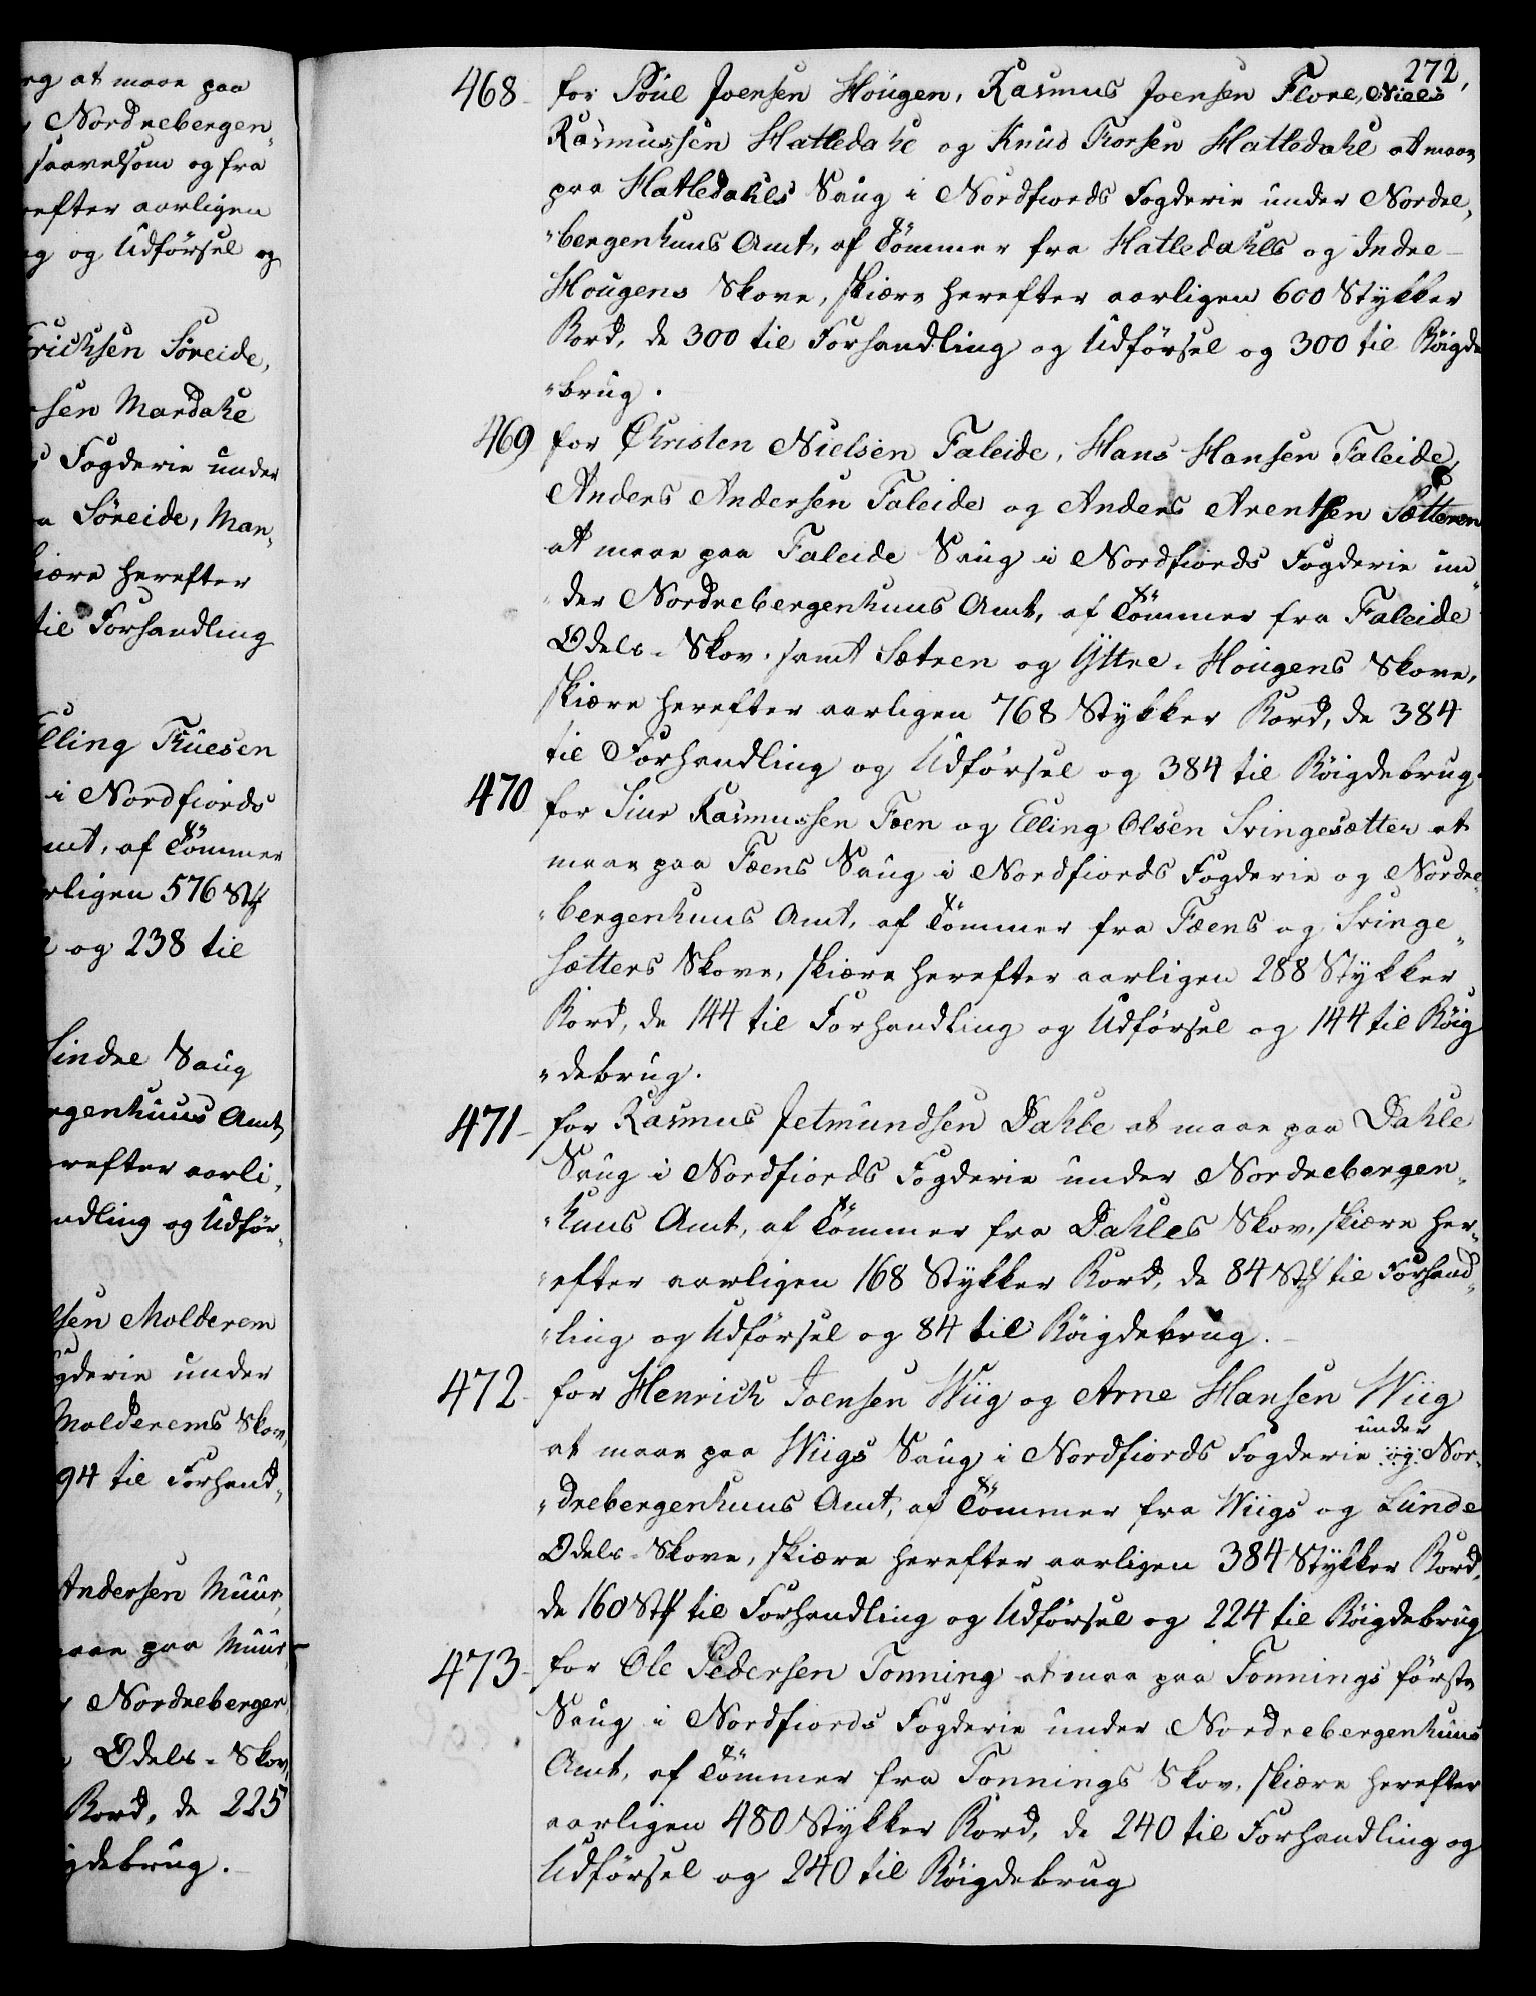 rg at maae paa
Nordrebergen„
saavelsom og fra
refter aarligen
g og Udförsel og
Erichsen Söreide,
sen Mardahl
Fogderie under
a Söreide, Man„
iære herefter
til Forhandling
Elling Truesen
i Nordfiords
mt, af Tömmer
rligen 576 St
og 238 til
Lindre Saug
rgenhuus Amt
refter aarli„
ndling og Udför„
sen Molderem
gderie under
Molderems Skov,
94 til Forhand„
Andersen Muur,
maae paa Muur„
Nordrebergen
Odels-Skov,
Bord, de 225
igdebrug.
272,
468 for Poul Joensen Hougen, Rasmus Joensen Flore, Niels
Rasmussen Hatledahl og Knud Torsen Hatledahl at maae
paa Hatledahls Saug i Nordfiords Fogderie under Nordre„
„bergenhuus Amt, af Tömmer fra Hatledahls og Indre-
Hougens Skove, skiære herefter aarligen 600 Stykker
Bord, de 300 til Forhandling og Udförsel og 300 til Böigde
„brug.
469 for Christen Nielsen Faleide, Hans Hansen Faleide,
Anders Andersen Faleide og Anders Arentsen Sætteren
at maae paa Faleide Saug i Nordfiords Fogderie un„
„der Nordrebergenhuus Amt, af Tömmer fra Faleide
Odels-Skov, samt Sætren og Yttre-Hougens Skove,
skiære herefter aarligen 768 Stykker Bord, de 384
til Forhandling og Udförsel og 384 til Böigdebrug.
470 for Siur Rasmussen Fæen og Elling Olsen Svingesætter at
maae paa Fæens Saug i Nordfiords Fogderie og Nordre„
„bergenhuus Amt, af Tömmer fra Fæens og Svinge„
sætters Skove, skiære herefter aarligen 288 Stykker
Bord, de 144 til Forhandling og Udförsel og 144 til Böig
„debrug.
471 for Rasmus Jetmundsen Dahle at maae paa Dahle
Saug i Nordfiords Fogderie under Nordrebergen„
„huus Amt, af Tömmer fra Dahles Skov, skiære her„
„efter aarligen 168 Stykker Bord, de 84 St til Forhand„
„ling og Udförsel og 84 til Böigdebrug.
472 for Henrich Joensen Wiig og Arne Hansen Wiig
under
at maae paa Wiigs Saug i Nordfiords Fogderie og Nor„
„drebergenhuus Amt, af Tömmer fra Wiigs og Lunde
Odels-Skove, skiære herefter aarligen 384 Stykker Bord,
de 160 St til Forhandling og Udförsel og 224 til Böigdebrug
473 for Ole Pedersen Tonning at maa paa Tonnings förste
Saug i Nordfiords Fogderie under Nordrebergenhuus
Amt, af Tömmer fra Tonnings Skov, skiære herefter
aarligen 480 Stykker Bord, de 240 til Forhandling og
Udförsel og 240 til Böigdebrug